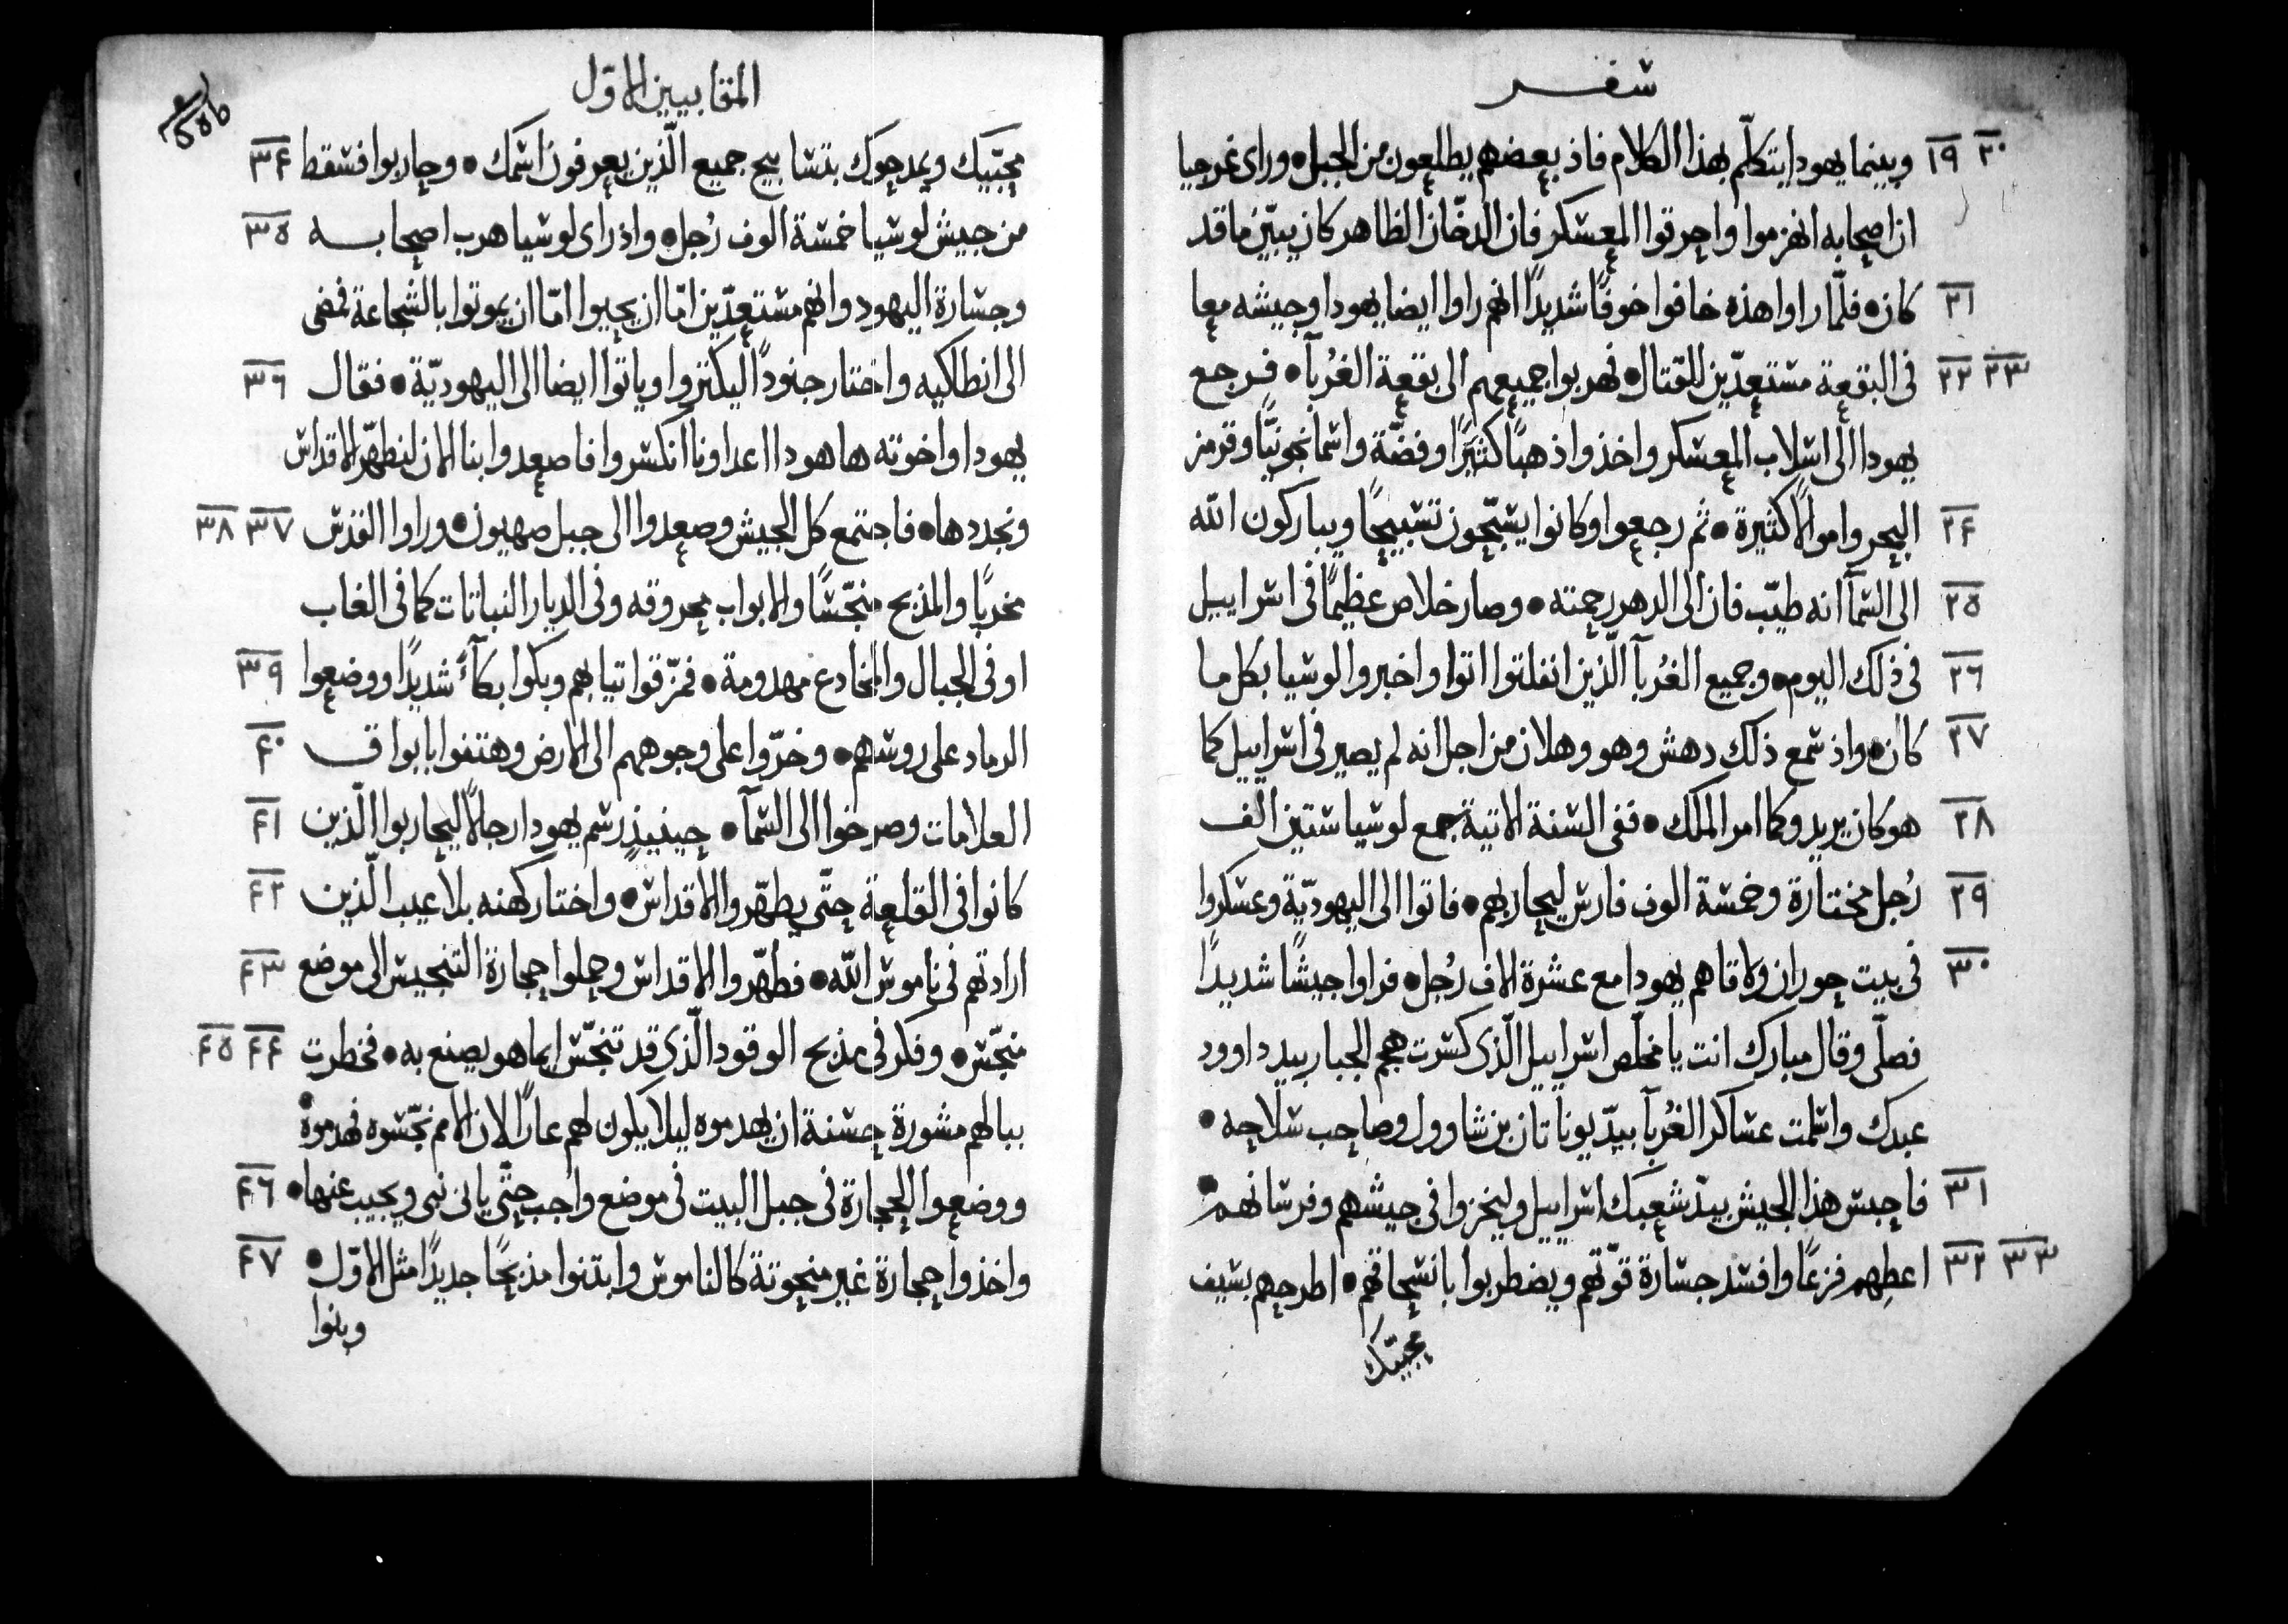 سفر
٢٠ ١٩ وبينما يهودا يتكلّم بهذا الكلام فاذ بعضهم يطلعون من الجبل • وراى غرجيا
ان اصحابه انهزموا واحرقوا المعسكر فان الدخّان الظاهر كان يبيّن ما قد
٢١ كان • فلمّا راوا هذه خافوا خوفًا شديدًا انهم راوا ايضا يهودا وجيشه معا
٢٣ ٢٢ فى البقعة مستعدّين للقتال • فهربوا جميعهم الى بقعة الغُربآ • فرجع
يهودا الى اسلاب المعسكر واخذوا ذهبًا كثيرًا وفضّة واسمانجونيًّا وقرمز
٢٤ البحر واموالًا كثيرة • ثم رجعوا وكانوا يسبّحون تسبيحًا ويباركون الله
٢٥ الى السمآ انه طيّب فان الى الدهر رحمته • وصار خلاص عظيمًا فى اسراييل
٢٦ فى ذلك اليوم • وجميع الغُربآ الّذين انفلتوا اتوا واخبروا لوسيا بكل ما
٢٧ كان • واذ سمع ذلك دهش وهو وهلان من اجل انه لم يصير فى اسراييل كما
٢٨ هو كان يريد وكما امر الملك • ففى السنة الاتية جمع لوسيا ستين الف
٢٩ رُجل مختارة وخمسة الوف فارس ليحاربهم • فاتوا الى اليهوديّة وعسكروا
٣٠ فى بيت حوران ولاقاهم يهودا مع عشرة الاف رُجل • فراوا جيشًا شديدًا
فصلّى وقال مبارك انت يا مخلّص اسراييل الّذى كسرت هجم الجبار بيد داوود
عبدك واسلمت عساكر الغُربآ بيدّ يوناتان بن شاوول وصاحب سلاحه •
٣١ فاحبس هذا الجيش بيدّ شعبك اسراييل وليخزوا فى جيشهم وفرسانهم •
٣٣ ٣٢ اعطِهم فزعًا وافسد جسارة قوّتهم ويضطربوا بانسحاقهم • اطرحهم بسيف
محبيّك
المقابيين الاوّل
محبّيك ويمدحوك بتسابيح جميع الّذين يعرفون اسمك • وحاربوا فسقط ٣٤
من جيش لوسيا خمسة الوف رُجل • واذ راى لوسيا هرب اصحابه ٣٥
وجسارة اليهود وانهم مستعدّين امّا ان يحيوا امّا ان يموتوا بالشجاعة فمضى
الى انطاكيه واختار جنودًا ليكتروا وياتوا ايضا الى اليهوديّة • فقال ٣٦
يهودا واخوته ها هودا اعداونا انكسروا فاصعدوا بنا الان لنطهّر الاقداس
ونجددها • فاجتمع كل الجيش وصعدوا الى جبل صهيون • وراوا القدس ٣٧ ٣٨
مخربًا والمذبح منجّسًا والابواب محروقه وفى الديار النباتات كما فى الغاب
او فى الجبال والمخادع مهدومة • فمزّقوا تيابهم وبكوا بكآءً شديدًا ووضعوا ٣٩
الرماد على روسهم • وخرّوا على وجوههم الى الارض وهتفوا بابواق ٤٠
العلامات وصرخوا الى السمآ • حينيذٍ رسم يهودا رجالًا ليحاربوا الّذين ٤١
كانوا فى القلعة حتّى يطهّروا الاقداس • واختار كهنه بلا عيب الّذين ٤٢
ارادتهم فى ناموس الله • فطهّروا الاقداس وحملوا حجارة التنجيس الى موضع ٤٣
منجّس • وفكر فى مذبح الوقود الّذى قد تنجّس ايما هو يصنع به • فخطرت ٤٤ ٤٥
ببالهم مشورة حسنة ان يهدموه ليلا يكون لهم عارًا لان الامم نجّسوه فهدموهُ
ووضعوا الحجارة فى جبل البيت فى موضع واجب حتّى ياتى نبى ويجيب عنها • ٤٦
واخذوا حجارة غير منحوتة كالناموس وابتنوا مذبحًا جديدًا مثل الاوّل • ٤٧
وبنوا